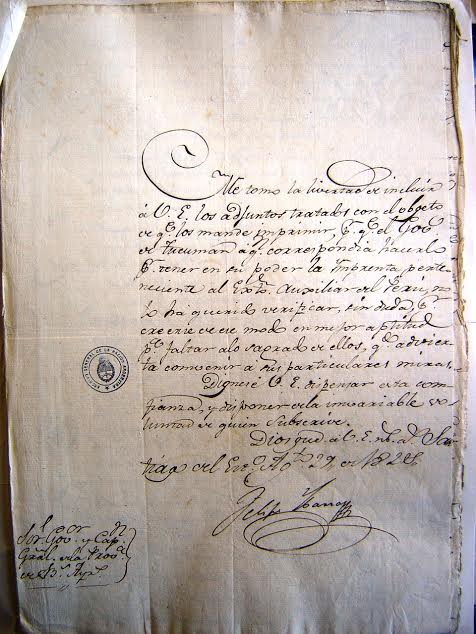 Me tomo la livertad de incluir
á V. E. los adjuntos tratados con el obgeto
de q.e los mande imprimir, p.r q.e el Gov.
de Tucuman á q.n correspondia hacerlo
p.r tener en su poder la Imprenta perte
neciente al Exto. Auxiliar del Peru, no
lo ha querido verificar, sin duda p.r
creerse de ese modo en mejor aptitud
p.a faltar alo sagrado de ellos, q.do advier
ta convenir a sus particulares miras.
Dignese V. E. dispensar esta con
fianza, y disponer de la invariable vo
luntad de quien subscrive.
Dios gue á V. E. m.s a.s San
tiago del Est.o Ag.to 29 de
Felipe Ibarra
S.or Gov.or y Cap.n
Gral. de la Prov.a
de B.s Ay.s